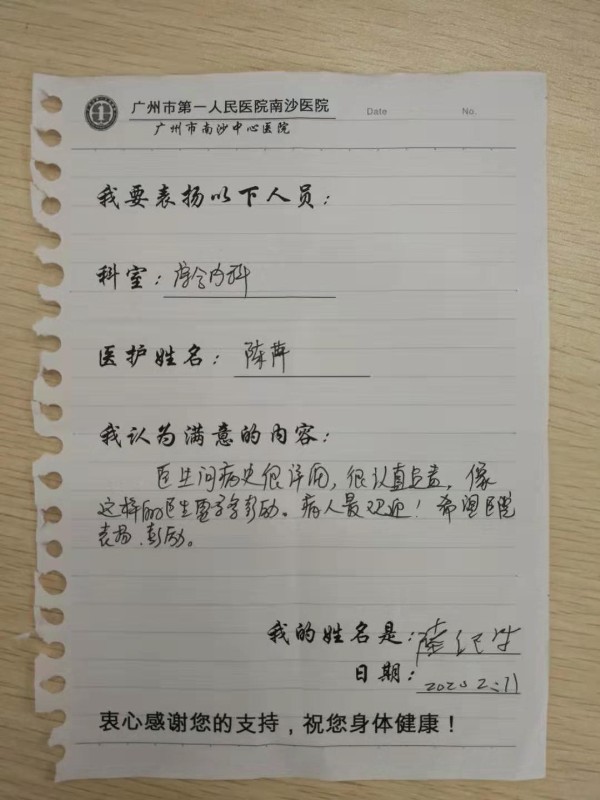 广州市第一人民医院南沙医院
广州市南沙中心医院
Date No.
我要表扬以下人员：
科室：综合内科
医护姓名：陈苹
我认为满意的内容：
医生问病史很详细，很认真负责，像
这样的医生要予以奖励。病人最欢迎！希望医院
表扬、奖励。
我的姓名是：陆纪
日期：2020 2.11
衷心感谢您的支持，祝您身体健康！